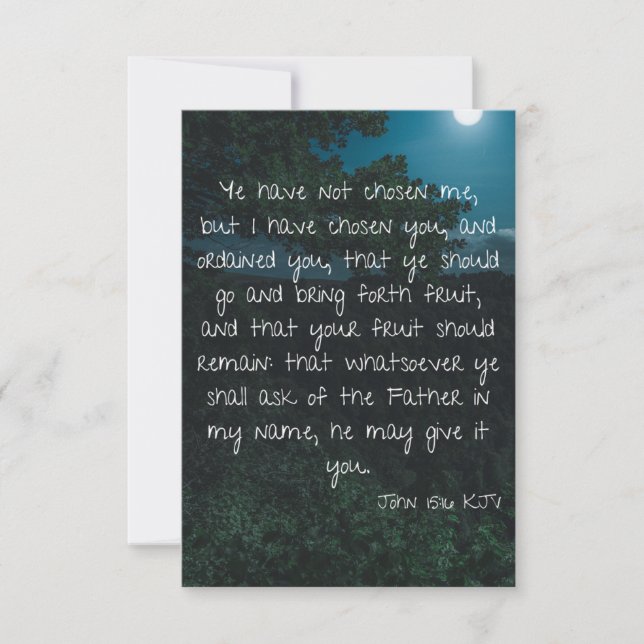 Ye have not chosen me,
but I have chosen you, and
ordained you, that ye should
go and bring forth fruit,
and that your fruit should
remain: that whatsoever ye
shall ask of the Father in
my name, he may give it
you.
John 15:16 KJV